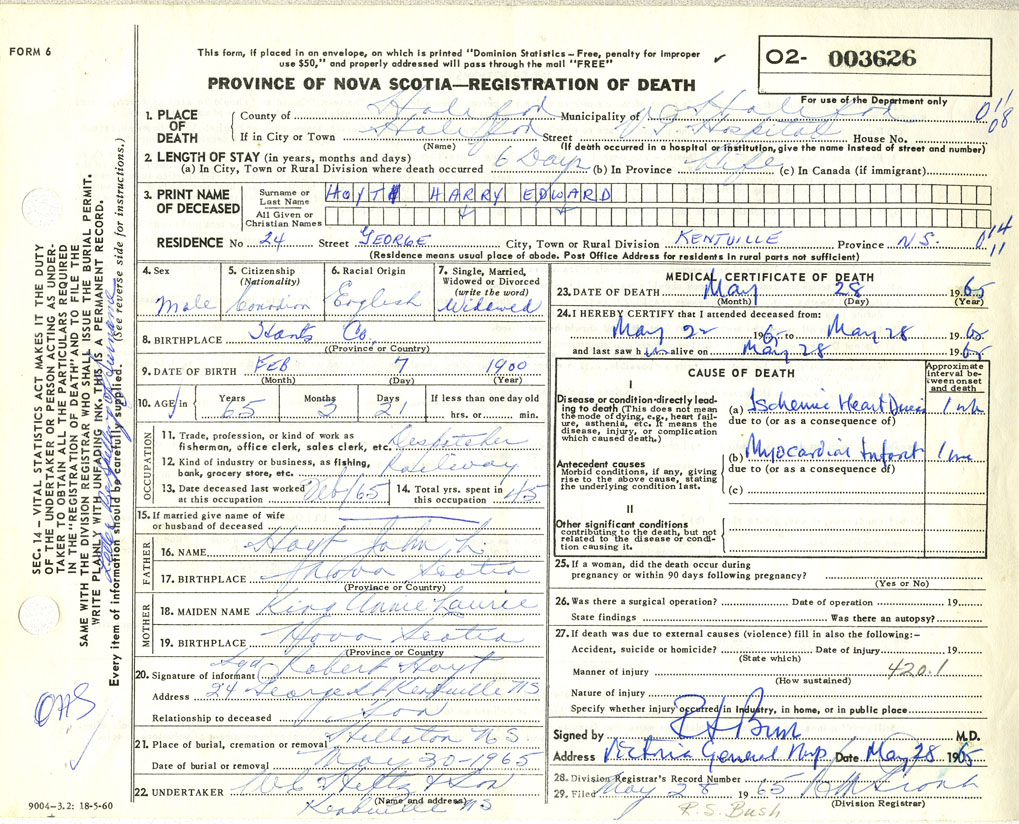 FORM 6
This form, if placed in an envelope, on which is printed "Dominion Statistics – Free, penalty for improper
use $50," and properly addressed will pass through the mail "FREE"
✓
O2- 003626
PROVINCE OF NOVA SCOTIA—REGISTRATION OF DEATH
For use of the Department only
1. PLACE OF DEATH
County of Halifax Municipality of Halifax
If in City or Town Halifax Street V. G. Hospital House No.
(Name) (If death occurred in a hospital or institution, give the name instead of street and number)
2. LENGTH OF STAY (in years, months and days)
(a) In City, Town or Rural Division where death occurred 6 Days (b) In Province Life (c) In Canada (if immigrant)
3. PRINT NAME OF DECEASED
Surname or Last Name HOYT HARRY EDWARD
All Given or Christian Names
RESIDENCE No 24 Street GEORGE City, Town or Rural Division KENTVILLE Province N.S.
(Residence means usual place of abode. Post Office Address for residents in rural parts not sufficient)
4. Sex
Male
5. Citizenship (Nationality)
Canadian
6. Racial Origin
English
7. Single, Married, Widowed or Divorced (write the word)
Widowed
8. BIRTHPLACE Hants Co.
(Province or Country)
9. DATE OF BIRTH FEB 7 1900
(Month) (Day) (Year)
10. AGE in Years Months Days If less than one day old
65 3 21 hrs. or min.
OCCUPATION
11. Trade, profession, or kind of work as
fisherman, office clerk, sales clerk, etc. Despatcher
12. Kind of industry or business, as fishing,
bank, grocery store, etc. Railway
13. Date deceased last worked at this occupation Feb/65
14. Total yrs. spent in this occupation 45
15. If married give name of wife
or husband of deceased
FATHER
16. NAME Hoyt John L.
17. BIRTHPLACE Nova Scotia
(Province or Country)
MOTHER
18. MAIDEN NAME King Annie Laurie
19. BIRTHPLACE Nova Scotia
(Province or Country)
20. Signature of informant Sgd Robert Hoyt
Address 24 George St Kentville NS
Relationship to deceased Son
21. Place of burial, cremation or removal N.S.
Date of burial or removal May 30-1965
22. UNDERTAKER & Son
(Name and address)
Kentville NS
MEDICAL CERTIFICATE OF DEATH
23. DATE OF DEATH May 28 1965
(Month) (Day) (Year)
24. I HEREBY CERTIFY that I attended deceased from:
May 22 1965 to May 28 1965
and last saw him alive on May 28 1965
CAUSE OF DEATH
Approximate interval between onset and death
I
Disease or condition directly leading to death (This does not mean the mode of dying, e.g., heart failure, asthenia, etc. It means the disease, injury, or complication which caused death.)
(a) Ischemic Heart Disease 1 wk
due to (or as a consequence of)
Antecedent causes
Morbid conditions, if any, giving rise to the above cause, stating the underlying condition last.
(b) Myocardial Infarct
due to (or as a consequence of)
(c)
II
Other significant conditions
contributing to the death, but not related to the disease or condition causing it.
25. If a woman, did the death occur during
pregnancy or within 90 days following pregnancy?
(Yes or No)
26. Was there a surgical operation? Date of operation 19
State findings Was there an autopsy?
27. If death was due to external causes (violence) fill in also the following:–
Accident, suicide or homicide? Date of injury 19
(State which)
Manner of injury 420.1
(How sustained)
Nature of injury
Specify whether injury occurred in industry, in home, or in public place
Signed by R S Bush M.D.
Address Victoria General Hosp. Date May 28 1965
28. Division Registrar's Record Number
29. Filed May 28 1965
(Division Registrar)
R.S. Bush
SEC. 14 – VITAL STATISTICS ACT MAKES IT THE DUTY
OF THE UNDERTAKER OR PERSON ACTING AS UNDER-
TAKER TO OBTAIN ALL THE PARTICULARS REQUIRED
IN THE "REGISTRATION OF DEATH" AND TO FILE THE
SAME WITH THE DIVISION REGISTRAR WHO SHALL ISSUE THE BURIAL PERMIT.
WRITE PLAINLY WITH UNFADING INK. THIS IS A PERMANENT RECORD.
Every item of information should be carefully supplied. (See reverse side for instructions.)
9004–3.2: 18-5-60